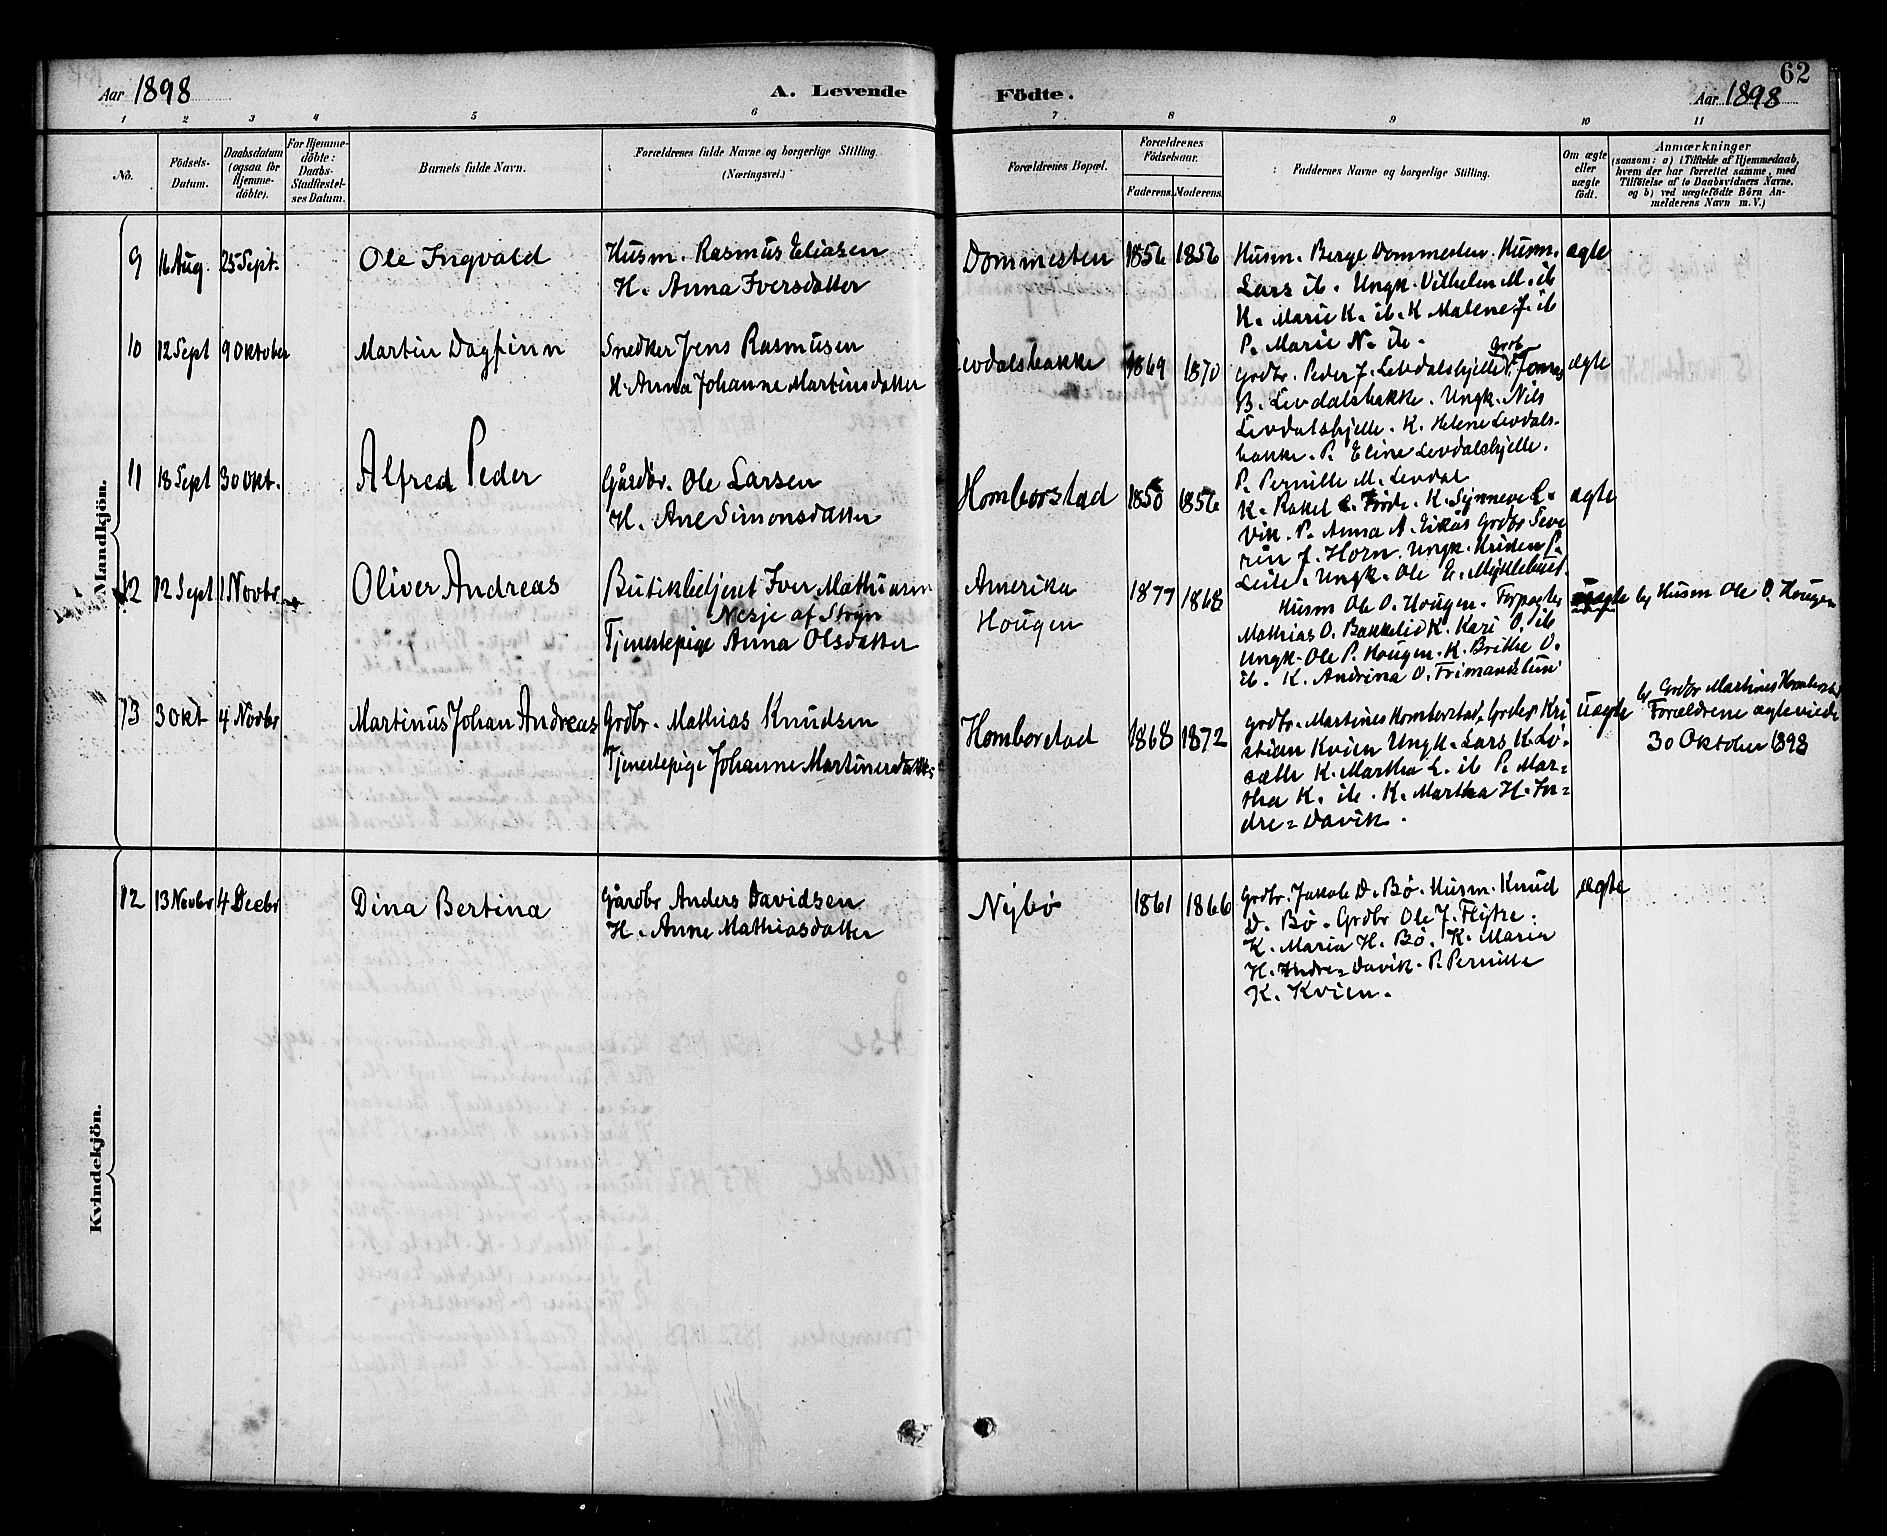 Aar 1898
A. Levende
Födte.
62
Aar 1898
1 2 3 4 5 6 7 8 9 10 11
No.
Födsels-Datum.
Daabsdatum (ogsaa for Hjemmedöbte).
For Hjemmedöbte: Daabs-Stadfæstelses Datum.
Barnets fulde Navn.
Forældrenes fulde Navne og borgerlige Stilling. (Næringsvei.)
Forældrenes Bopæl.
Forældrenes Födselsaar.
Faderens. Moderens.
Faddernes Navne og borgerlige Stilling.
Om ægte eller uægte födt.
Anmærkninger
(saasom: a) i Tilfælde af Hjemmedaab, hvem der har forrettet samme, med Tilföielse af to Daabsvidners Navne, og b) ved uægtefödte Börn Anmelderens Navn m. V.)
Mandkjön.
9 16 Aug. 25 Sept. Ole Ingvald
Husm. Rasmus Eliasen
H. Anna Iversdatter
Dommesten 1856 1856
Husm. Berge Dommesten. Husm.
Lars ib. Ungk. Vilhelm M. ib
K. Marie K. ib. K Malene J. ib
P. Marie N. ib.
ægte
10 12 Sept 9 Oktober Martin Dagfinn
Snedker Jens Rasmusen
H. Anna Johanne Martinsdatter
Levdalsbakke 1869 1870
Grdbr. Peder J. Levdalshjelle Grdb. Jonas
B. Levdalsbakke. Ungk. Nils
Levdalshjelle. K. Helene Levdals-
bakke. P. Eline Levdalshjelle.
P. Pernille M. Levdal
ægte
11 18 Sept 30 Okt. Alfred Peder
Gårdbr. Ole Larsen
H. Ane Simonsdatter
Homborstad 1850 1856
K. Rakel E. Förde. K. Synneve E.
Vik. P. Anna A. Eikås Grdbr Seve
rin J. Horn. Ungk. Kristen P.
Leite. Ungk. Ole E. Myklebust.
ægte
12 12 Sept 1 Novbr Oliver Andreas
Butikbetjent Iver Mathiasen
Nesje af Stryn
Tjenestepige Anna Olsdatter
Amerika
Hougen
1877 1868
Husm Ole O. Hougen. Forpagter
Mathias O. Bakkelid K. Kari O. ib
Ungk. Ole P. Hougen. K. Brithe O.
ib. K. Andrina O. Frimandslund
uægte
b) Husm Ole O. Hougen
13 3 Okt 4 Novbr Martinus Johan Andreas
Grdbr. Mathias Knudsen
Tjenestepige Johanne Martinesdatter
Homborstad 1868 1872
Grdbr. Martines Homborstad. Grdbr Kri
stian Kvien Ungk. Lars K. Lo-
sætte K. Martha L. ib P. Mar=
tha K. ib. K. Martha H. In=
dre=Davik.
uægte
b) Grdbr Martines Homborstad
Forældrene ægteviede
30 Oktober 1898
Kvindekjön.
12 13 Novbr 4 Decbr Dina Bertina
Gårdbr Anders Davidsen
H. Anne Mathiasdatter
Nybö 1861 1866
Grdbr. Jakob D. Bö. Husm. Knud
D. Bö. Grdbr Ole J. Flytre.
K. Maria H. Bö. K. Maria
H. Indre=Davik. P. Pernille
K. Kvien.
ægte